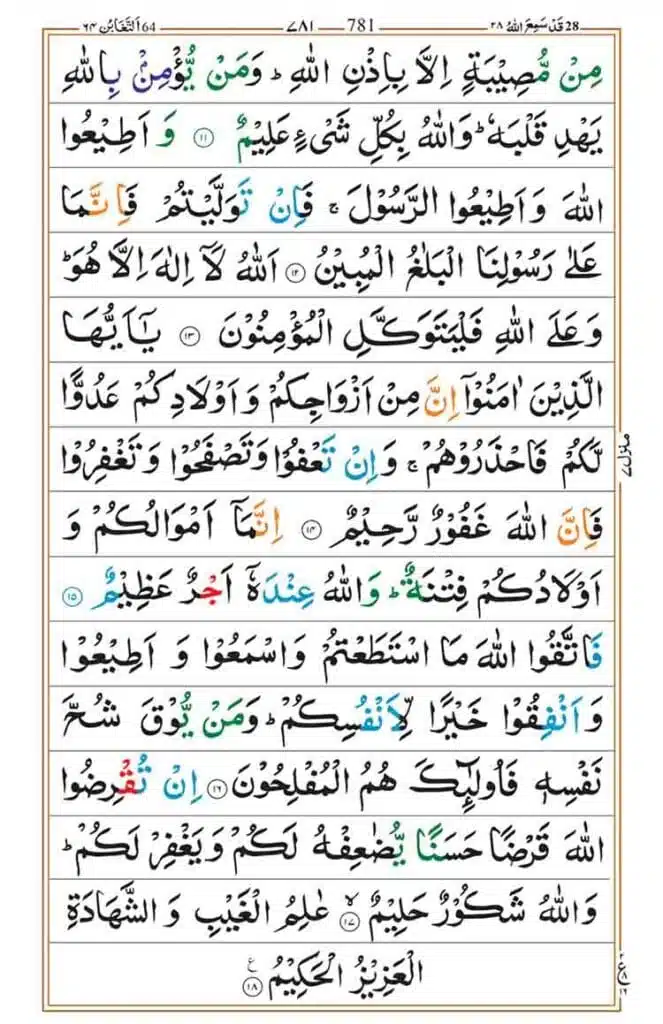 28 قَدْ سَمِعَ اللّٰهُ ٢٨ 781 ٧٨١ 64 اَلتَّغَابُنِ ٦٤
مِنْ مُّصِيْبَةٍ اِلَّا بِاِذْنِ اللّٰهِ ؕ وَمَنْ يُّؤْمِنْۢ بِاللّٰهِ
يَهْدِ قَلْبَهٗ ؕ وَاللّٰهُ بِكُلِّ شَیْءٍ عَلِيْمٌ ۝۱۱ وَ اَطِيْعُوا
اللّٰهَ وَ اَطِيْعُوا الرَّسُوْلَ ۚ فَاِنْ تَوَلَّيْتُمْ فَاِنَّمَا
عَلٰى رَسُوْلِنَا الْبَلٰغُ الْمُبِيْنُ ۝۱۲ اَللّٰهُ لَاۤ اِلٰهَ اِلَّا هُوَ ؕ
وَ عَلَى اللّٰهِ فَلْيَتَوَكَّلِ الْمُؤْمِنُوْنَ ۝۱۳ يٰۤاَيُّهَا
الَّذِيْنَ اٰمَنُوْۤا اِنَّ مِنْ اَزْوَاجِكُمْ وَ اَوْلَادِكُمْ عَدُوًّا
لَّكُمْ فَاحْذَرُوْهُمْ ۚ وَاِنْ تَعْفُوْا وَتَصْفَحُوْا وَ تَغْفِرُوْا
فَاِنَّ اللّٰهَ غَفُوْرٌ رَّحِيْمٌ ۝۱۴ اِنَّمَاۤ اَمْوَالُكُمْ وَ
اَوْلَادُكُمْ فِتْنَةٌ ؕ وَاللّٰهُ عِنْدَهٗۤ اَجْرٌ عَظِيْمٌ ۝۱۵
فَاتَّقُوا اللّٰهَ مَا اسْتَطَعْتُمْ وَاسْمَعُوْا وَ اَطِيْعُوْا
وَ اَنْفِقُوْا خَيْرًا لِّاَنْفُسِكُمْ ؕ وَمَنْ يُّوْقَ شُحَّ
نَفْسِهٖ فَاُولٰٓئِكَ هُمُ الْمُفْلِحُوْنَ ۝۱۶ اِنْ تُقْرِضُوا
اللّٰهَ قَرْضًا حَسَنًا يُّضٰعِفْهُ لَكُمْ وَ يَغْفِرْ لَكُمْ ؕ
وَاللّٰهُ شَكُوْرٌ حَلِيْمٌ ۙ۝۱۷ عٰلِمُ الْغَيْبِ وَ الشَّهَادَةِ
الْعَزِيْزُ الْحَكِيْمُ ۝۱۸ ع
منزل ٧
٢
ع ٨
١٦